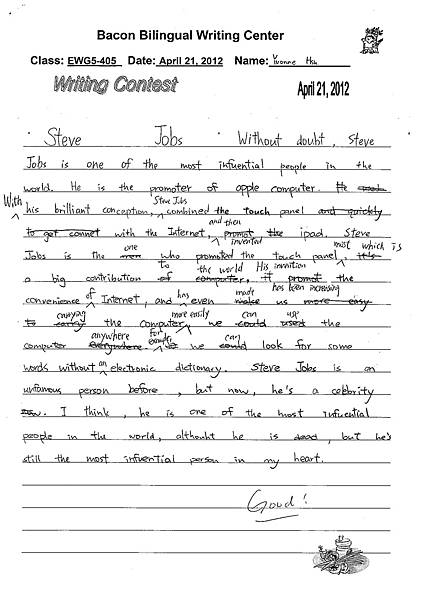 Bacon Bilingual Writing Center
Class: EWG5-405 Date: April 21, 2012 Name: Yvonne Hsu
Writing Contest April 21, 2012
Steve Jobs Without doubt, Steve
Jobs is one of the most infuential people in the
world. He is the promoter of apple computer. He
With his brilliant conception, Steve Jobs combined the touch panel and quickly
to get connet with the Internet, and then invented prompt the ipad. Steve
Jobs is the one man who promoted the touch panel, most which is
a big contribution to of the world computer. His invention it prompt the
convenience of Internet, and has even made make us has been increasing more easy
to carry carrying the computer more easily, we can could use used the
computer anywhere everywhere. For example, we can could look for some
words without an electronic dictionary. Steve Jobs is an
unfamous person before, but now, he's a celebrity
now. I think, he is one of the most influcial
people in the world, althouht he is dead, but he's
still the most infuential person in my heart.
Good!